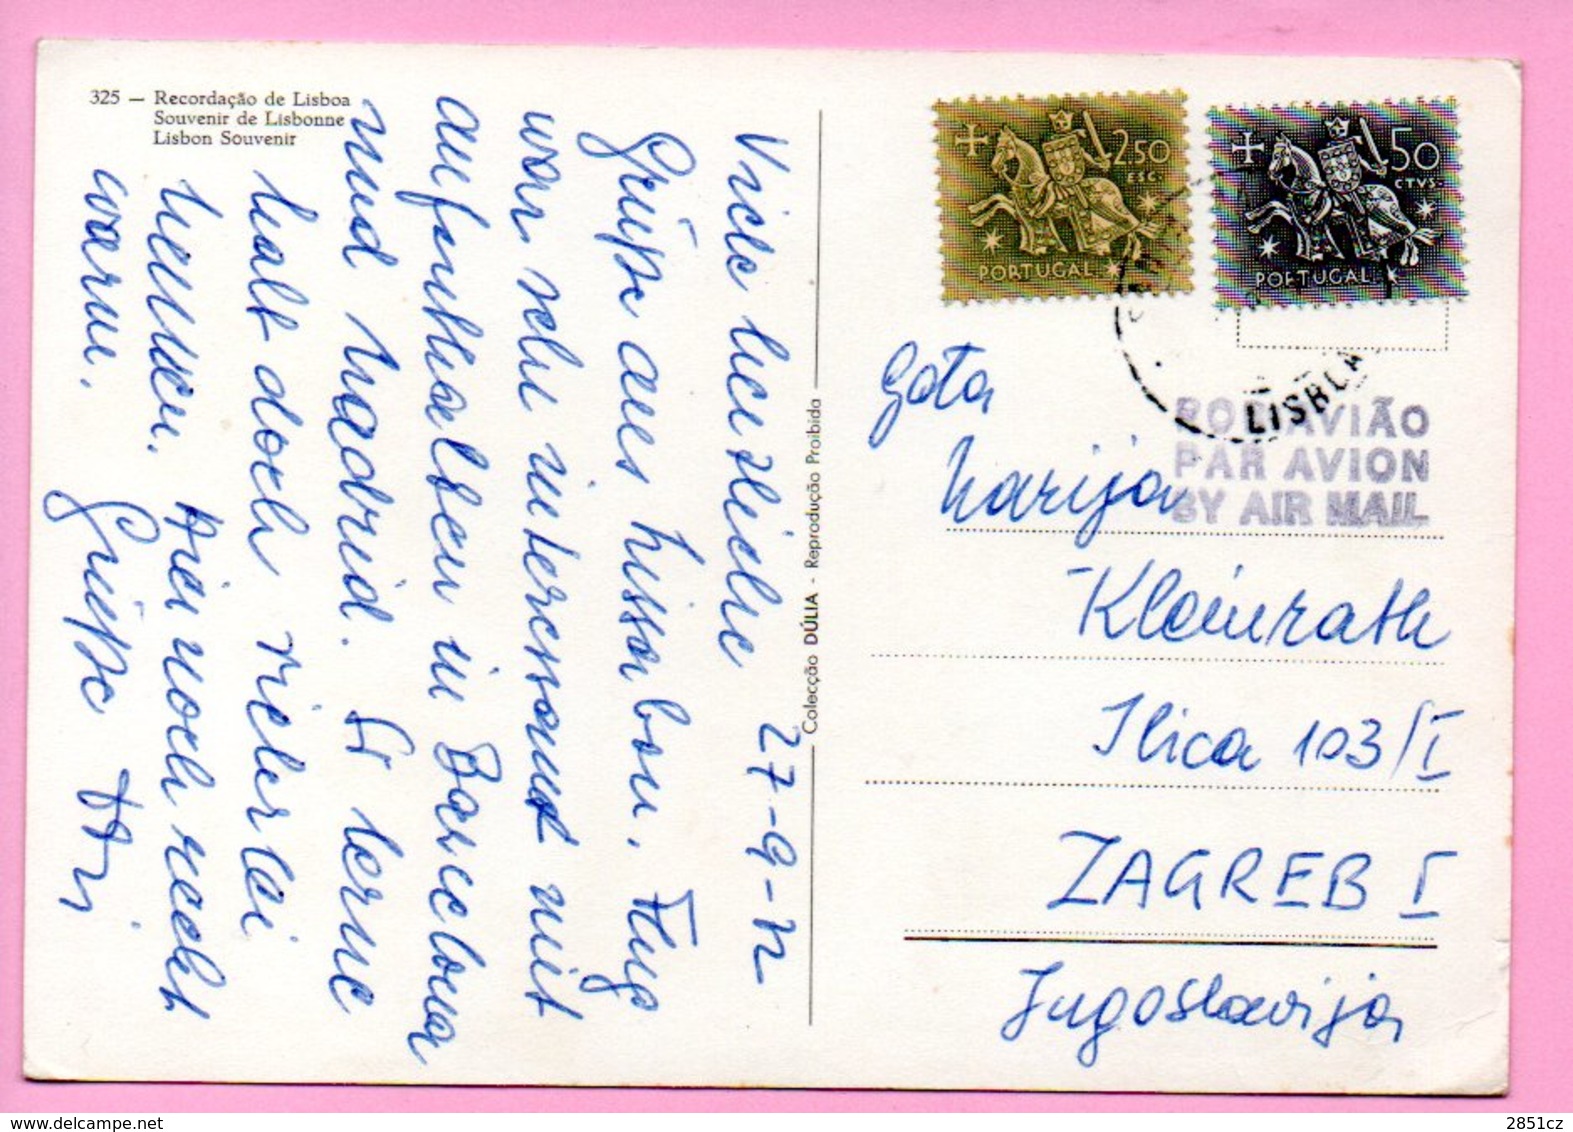 325 — Recordação de Lisboa
Souvenir de Lisbonne
Lisbon Souvenir
27-9-72
Viele herzliche
Grüße aus Lissabon. Flug
war sehr interessant mit
aufenthalten in Barcelona
und Madrid. Ist lerne
halt doch vielerlei
kennen. Hier noch recht
warm.
Grüße
Colecção DÚLIA - Reprodução Proibida
2.50
ESC.
PORTUGAL
50
CTVS.
PORTUGAL
LISBOA
POR AVIÃO
PAR AVION
BY AIR MAIL
Marija
Kleinrath
Ilica 103/I
ZAGREB I
Jugoslavija
2851cz